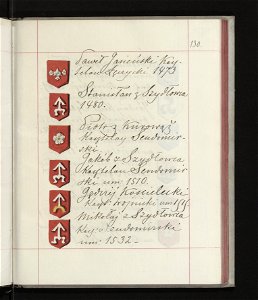 130.
Paweł Janiński Kaš-
ztelan Łęczycki 1473
Stanisław z Szydłowca
1480.
Piotr z Kurowa
Kasztelan Sendomir-
ski.
Jakób z Szydłowca
Kasztelan Sendomir
ski um. 1510.
Andrzej Kościelecki
Kasz. Wojnicki um. 1515
Mikołaj z Szydłowca
Kasz. Sendomirski
um. 1532.